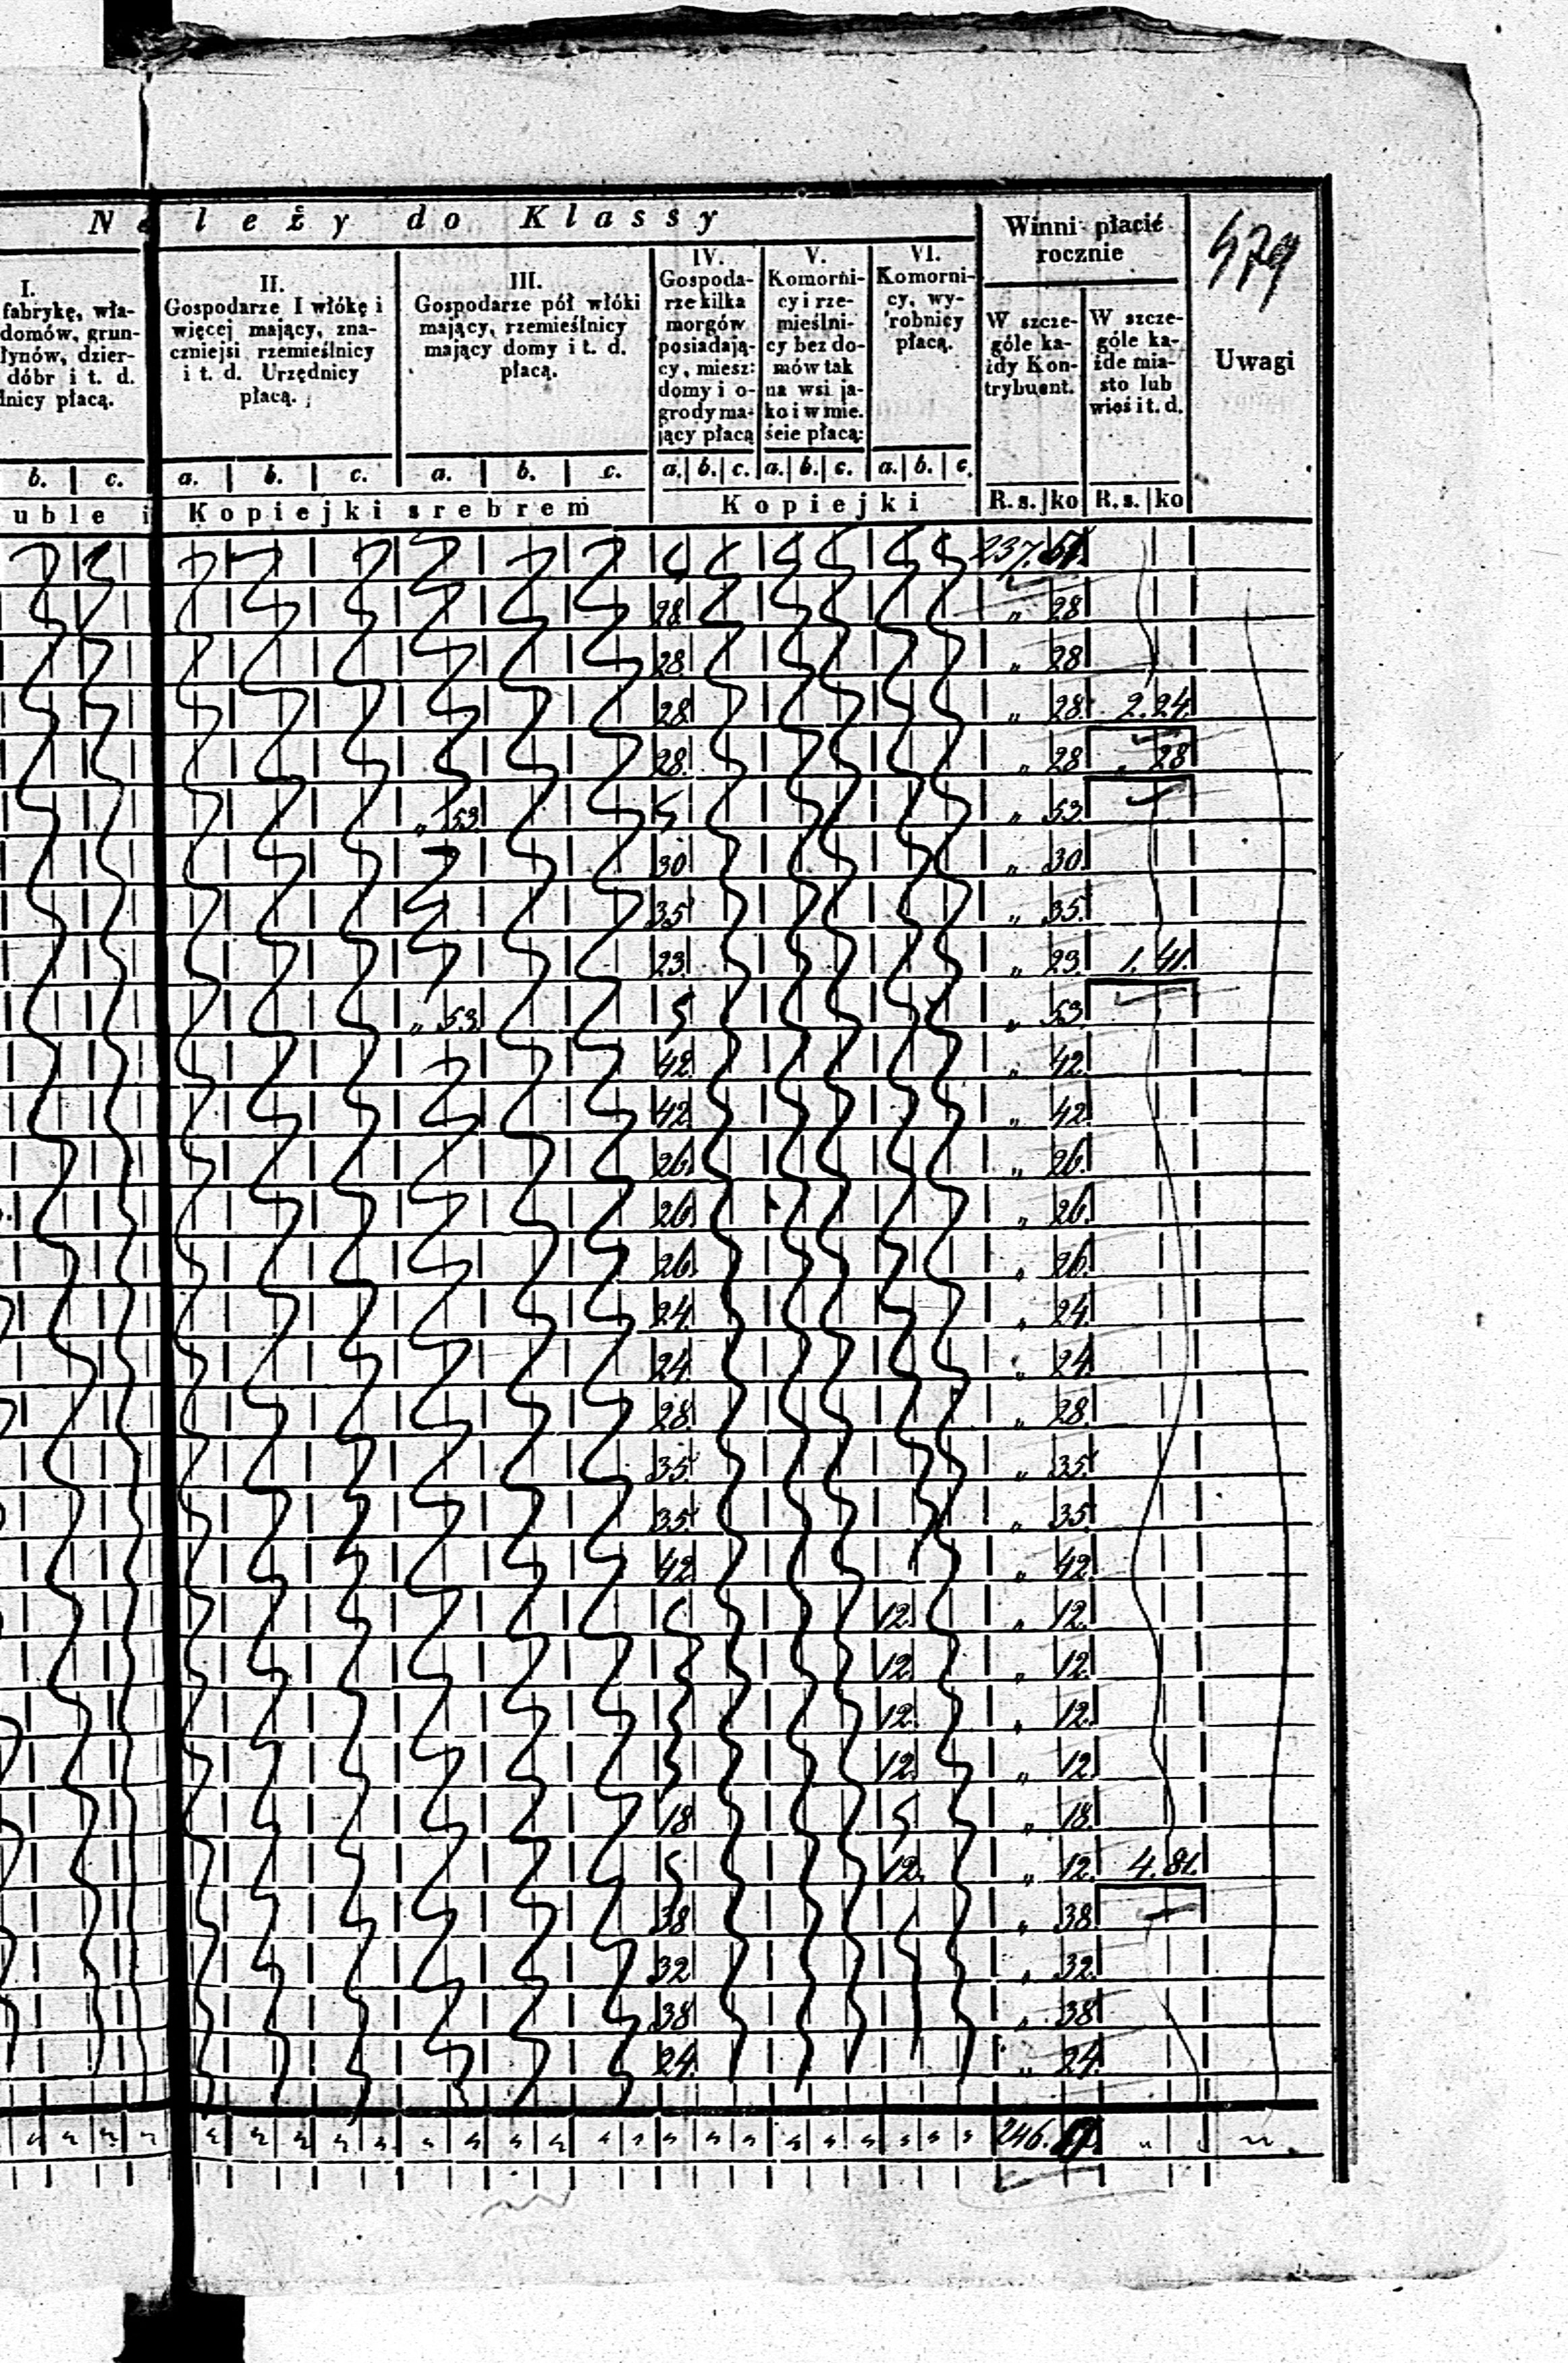 Należy do Klassy
Winni płacić rocznie
479
I.
fabrykę, wła-
domów, grun-
łynów, dzier-
dóbr i t. d.
dnicy płacą.
II.
Gospodarze I włókę i
więcej mający, zna-
czniejsi rzemieślnicy
i t. d. Urzędnicy
płacą.
III.
Gospodarze pół włóki
mający, rzemieślnicy
mający domy i t. d.
płacą.
IV.
Gospoda-
rze kilka
morgów
posiadają-
cy, miesz:
domy i o-
grody ma-
jący płacą
V.
Komorni-
cy i rze-
mieślni-
cy bez do-
mów tak
na wsi ja-
ko i w mie.
ście płacą:
VI.
Komorni-
cy, wy-
robnicy
płacą.
W szcze-
góle ka-
żdy Kon-
trybuent.
W szcze-
góle ka-
żde mia-
sto lub
wieś i t. d.
Uwagi
b. c. a. b. c. a. b. c. a. b. c. a. b. c. a. b. c.
uble i Kopiejki srebrem Kopiejki R. s. ko R. s. ko
237.
28 „ 28
28 „ 28
28 „ 28. 2.24.
28. „ 28 „ 28
„ 53. „ 53.
30 „ 30.
35 „ 35.
23. „ 23. 1.41.
„ 53. „ 53.
42 „ 42.
42 „ 42
26. „ 26.
26 „ 26.
26. „ 26.
24. „ 24.
24. „ 24.
28. „ 28.
35. „ 35.
35. „ 35.
42. „ 42.
12. „ 12.
12. „ 12.
12. „ 12.
12. „ 12.
18 „ 18.
12. „ 12. 4.81.
38 „ 38.
32 „ 32.
38 „ 38
24. „ 24.
246.